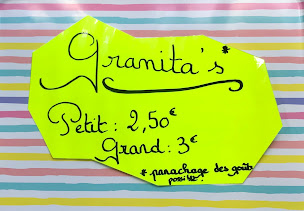 Granita's*
Petit : 2,50€
Grand : 3€
* panachage des goûts
possible !